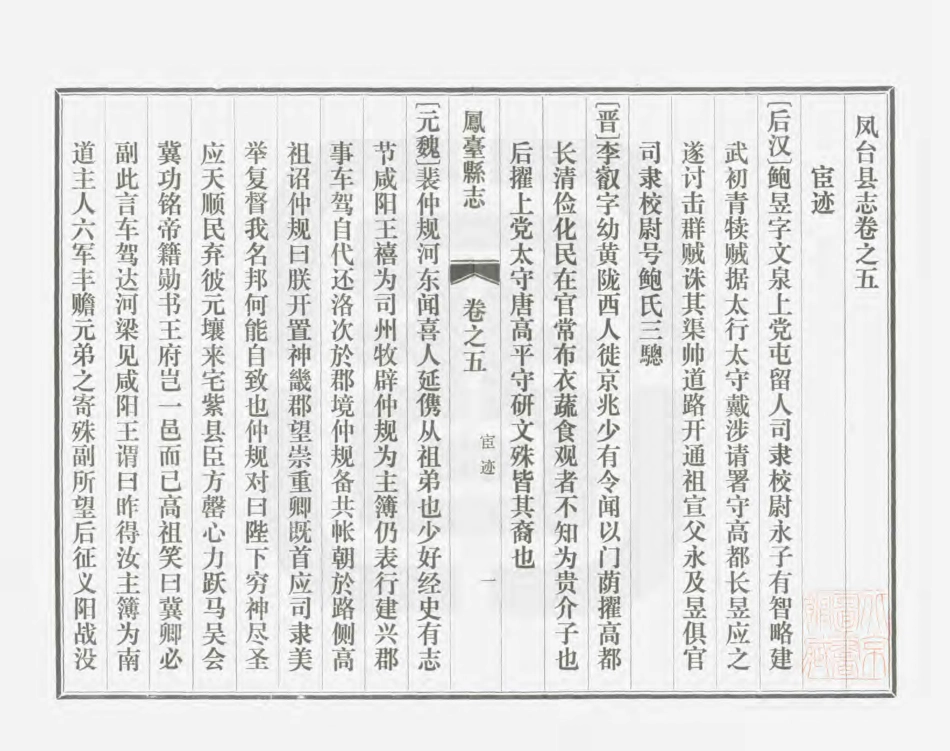 凤台县志卷之五
宦迹
〔后汉〕鲍昱字文泉上党屯留人司隶校尉永子有智略建
武初青犊贼据太行太守戴涉请署守高都长昱应之
遂讨击群贼诛其渠帅道路开通祖宣父永及昱俱官
司隶校尉号鲍氏三骢
〔晋〕李叡字幼黄陇西人徙京兆少有令闻以门荫擢高都
长清俭化民在官常布衣蔬食观者不知为贵介子也
后擢上党太守唐高平守研文殊皆其裔也
鳳臺縣志
卷之五
宦迹
一
〔元魏〕裴仲规河东闻喜人延儁从祖弟也少好经史有志
节咸阳王禧为司州牧辟仲规为主簿仍表行建兴郡
事车驾自代还洛次於郡境仲规备共帐朝於路侧高
祖诏仲规曰朕开置神畿郡望崇重卿既首应司隶美
举复督我名邦何能自致也仲规对曰陛下穷神尽圣
应天顺民弃彼元壤来宅紫县臣方罄心力跃马吴会
冀功铭帝籍勋书王府岂一邑而已高祖笑曰冀卿必
副此言车驾达河梁见咸阳王谓曰昨得汝主簿为南
道主人六军丰赡元弟之寄殊副所望后征义阳战没